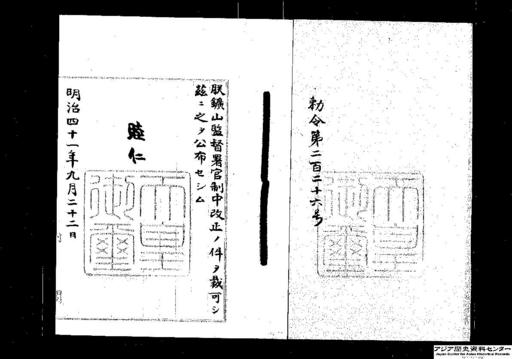 勅令第二百二十六号
朕鑛山監督署官制中改正ノ件ヲ裁可シ
玆ニ之ヲ公布セシム
睦仁
天皇御璽
明治四十一年九月二十二日
アジア歴史資料センター
Japan Center for Asian Historical Records